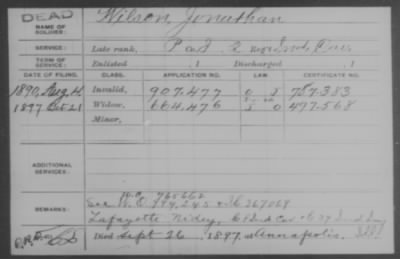 DEAD
NAME OF SOLDIER: Wilson, Jonathan
SERVICE: Late rank,
TERM OF SERVICE: Enlisted , 1 Discharged , 1
DATE OF FILING. CLASS. APPLICATION NO. LAW CERTIFICATE NO.
1890, Aug. 14 Invalid, 907.477 757.383
1897 Oct 21 Widow, 664,476 497.568
Minor,
ADDITIONAL SERVICES:
W.C. 765662
REMARKS: See W.O. 794,245 267069
Lafayette
Died Sept 26, 1897, at Annapolis.